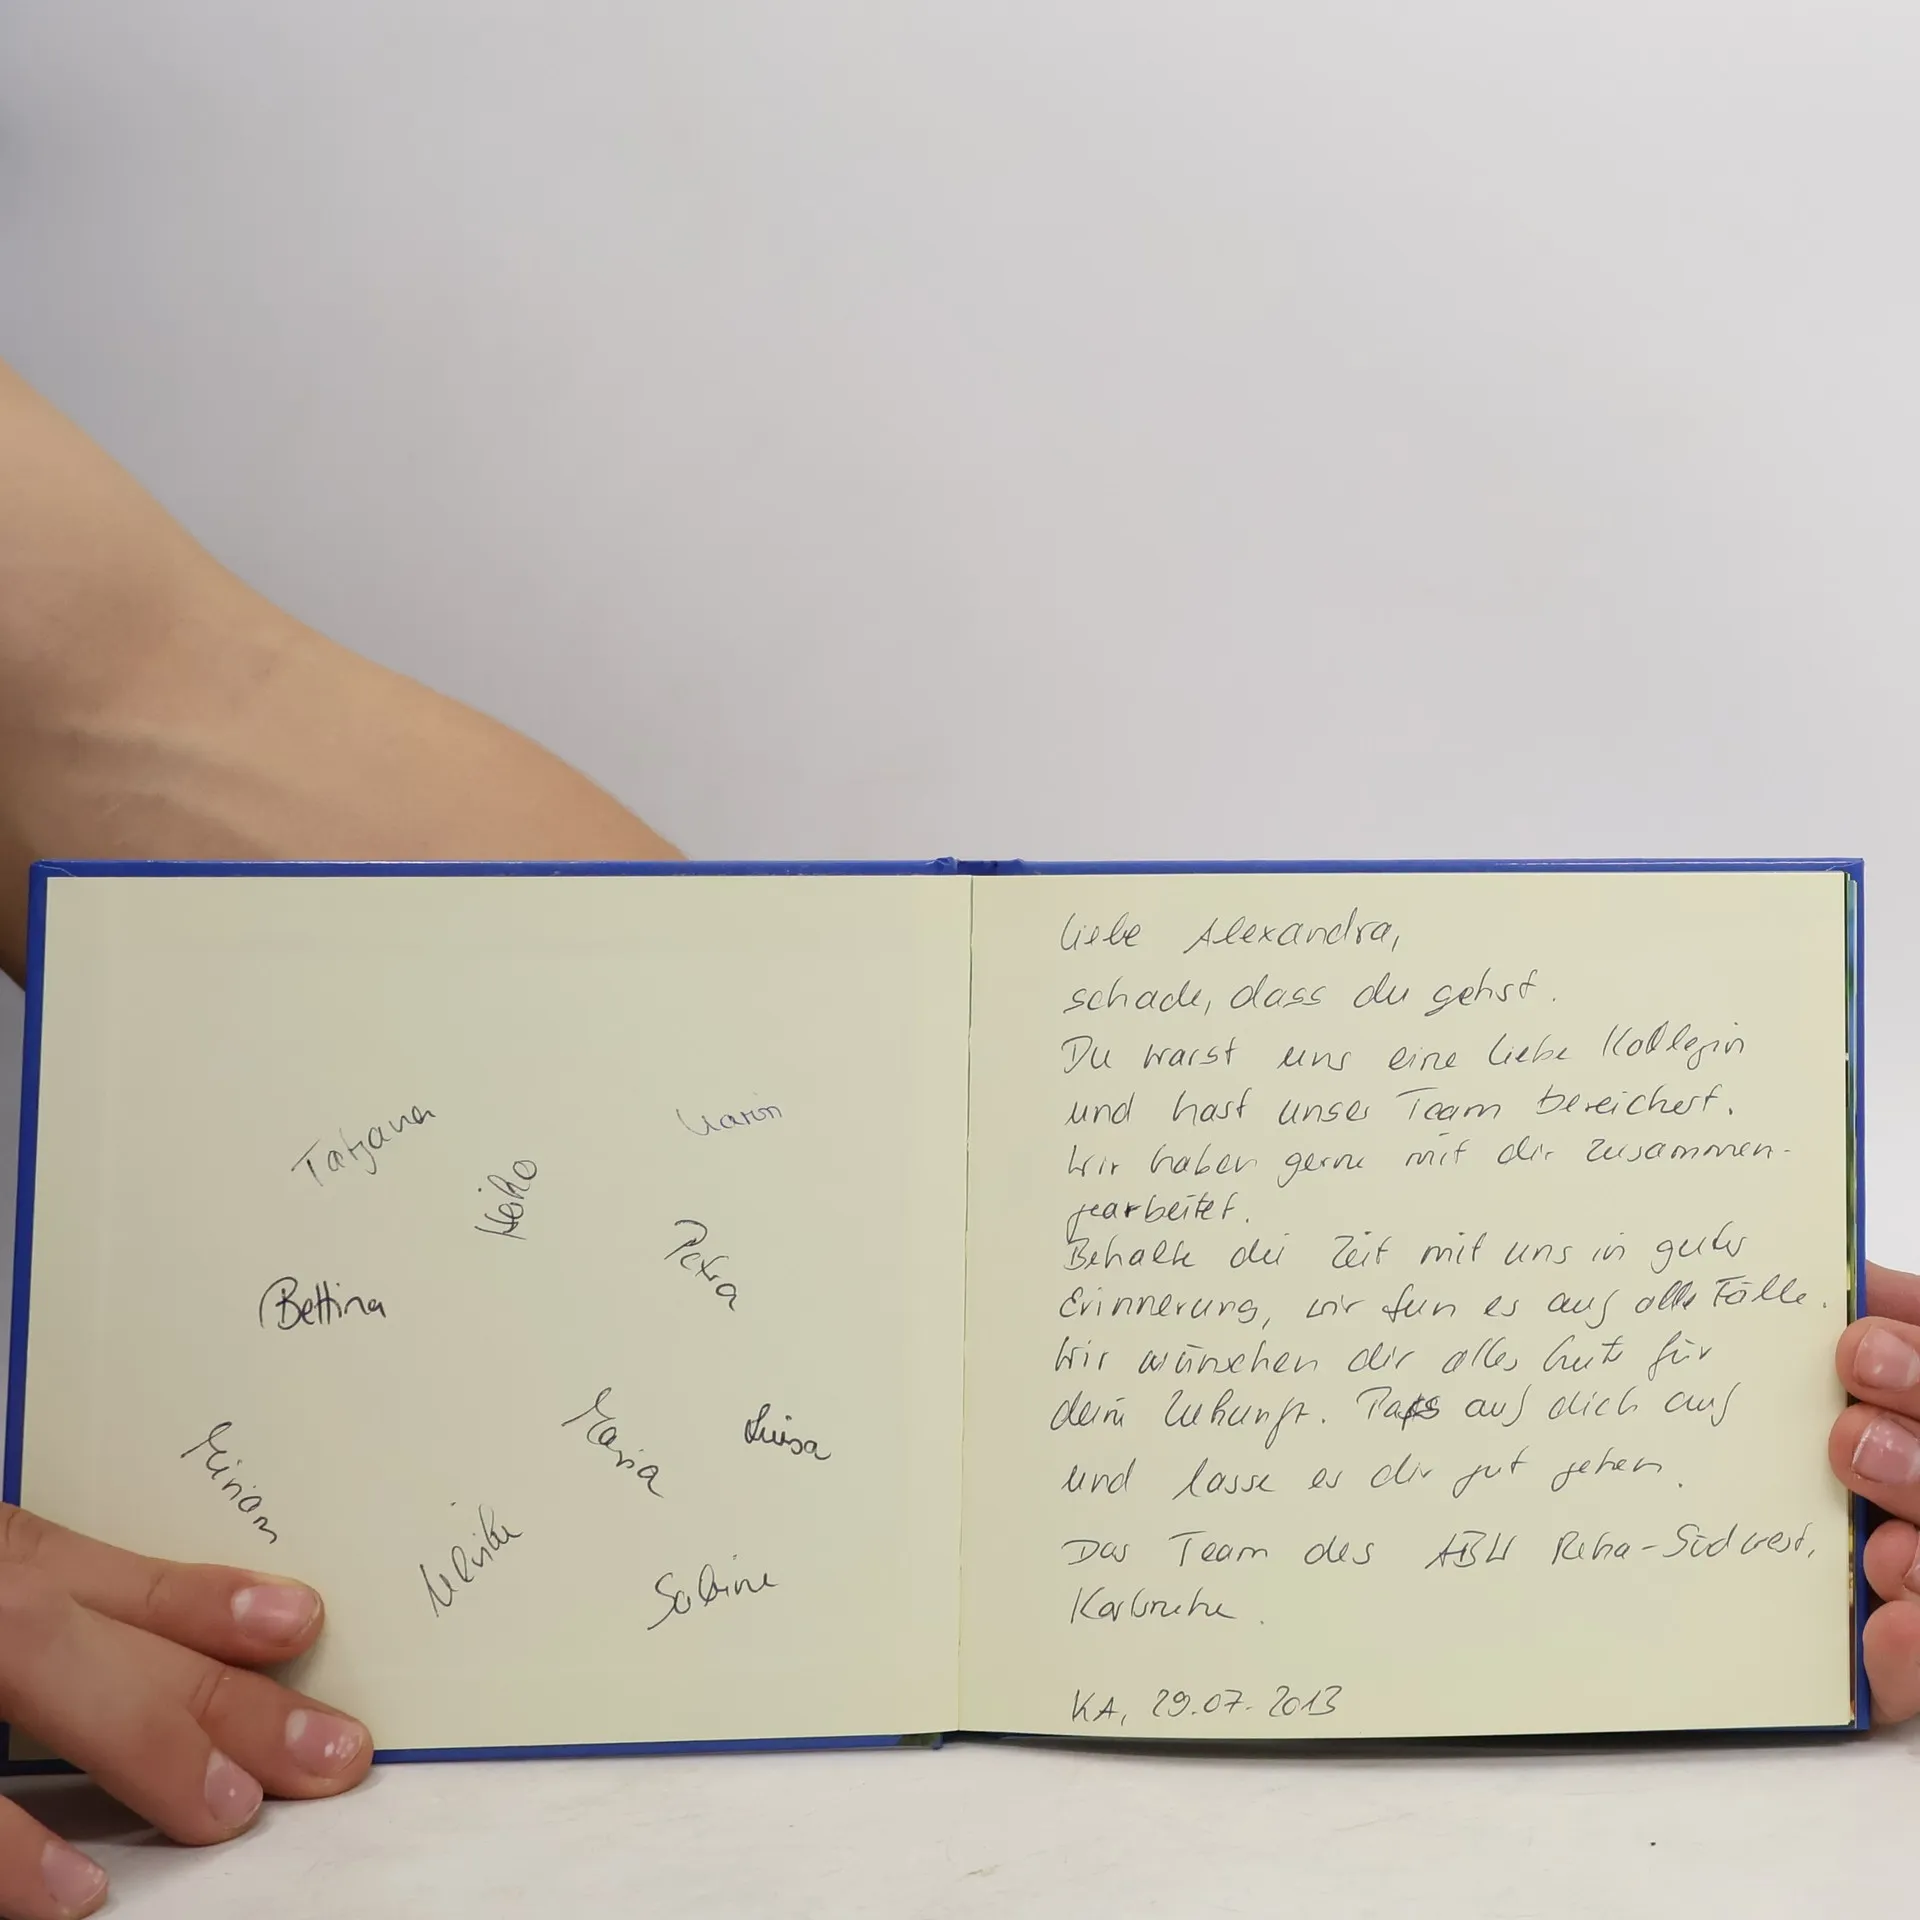 Tatjana
Karin
Heiko
Petra
Bettina
Maria
Luisa
Miriam
Ulrike
Sabine
Liebe Alexandra,
schade, dass du gehst.
Du warst uns eine liebe Kollegin
und hast unser Team bereichert.
Wir haben gerne mit dir zusammen-
gearbeitet.
Behalte die Zeit mit uns in guter
Erinnerung, wir tun es auf alle Fälle.
Wir wünschen dir alles Gute für
deine Zukunft. Pass auf dich auf
und lasse es dir gut gehen.
Das Team des ABW Reha-Südwest,
Karlsruhe.
KA, 29.07.2013